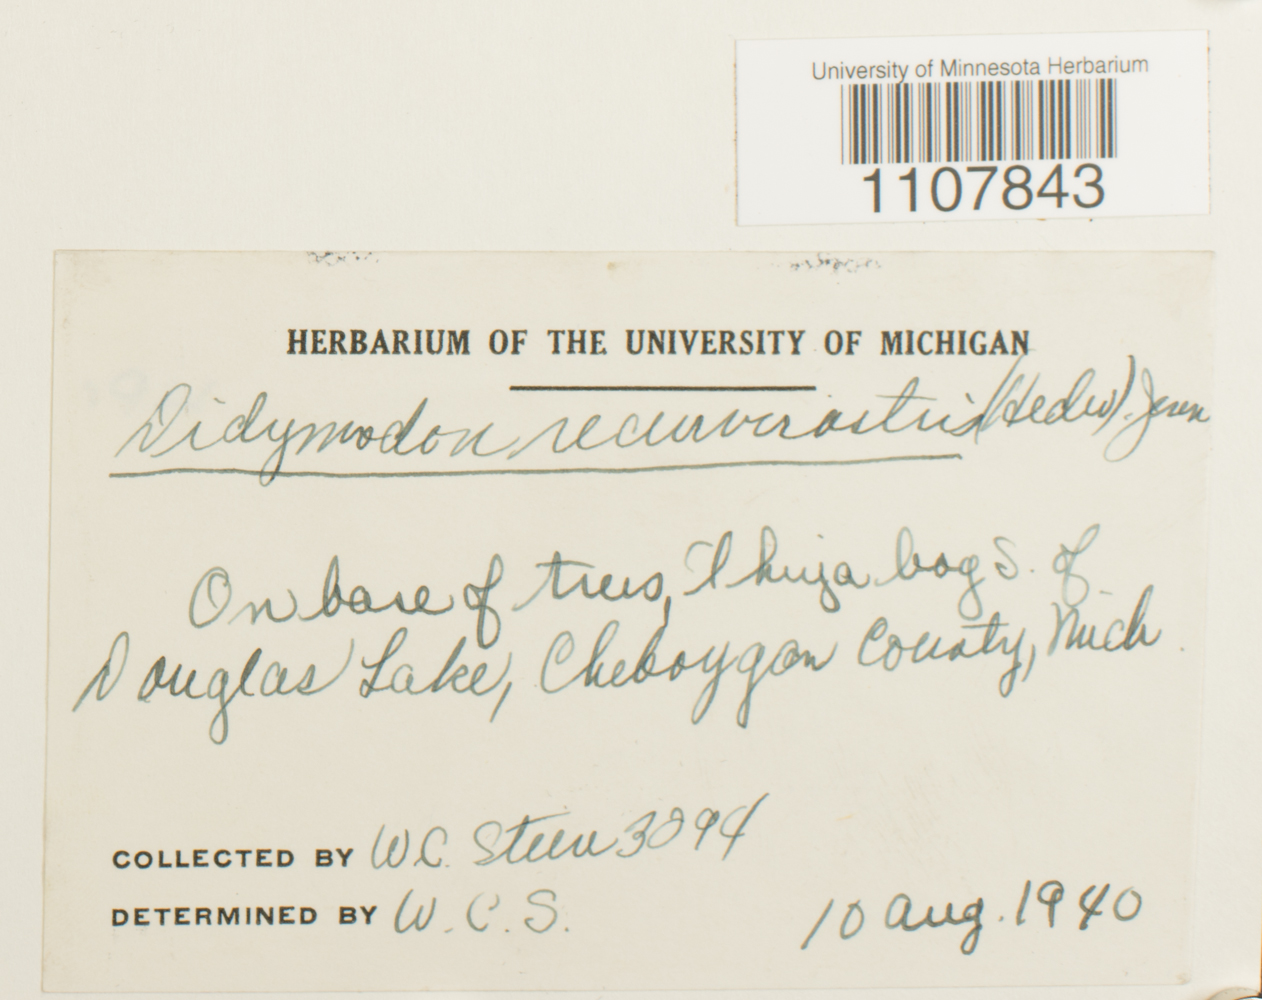 University of Minnesota Herbarium
1107843
HERBARIUM OF THE UNIVERSITY OF MICHIGAN
Didymodon recurvirostris (Hedw). Jenn
On base of trees, Thuja bogs. of
Douglas Lake, Cheboygan County, Mich.
COLLECTED BY W.C. Steere 3094
DETERMINED BY W.C.S.
10 Aug. 1940